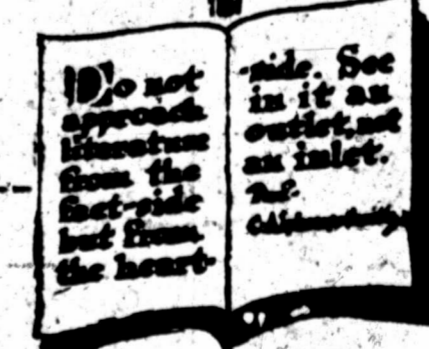 Do not
approach
literature
from the
fact-side
but from
the heart-
-side. See
in it an
outlet, not
an inlet.
Prof.